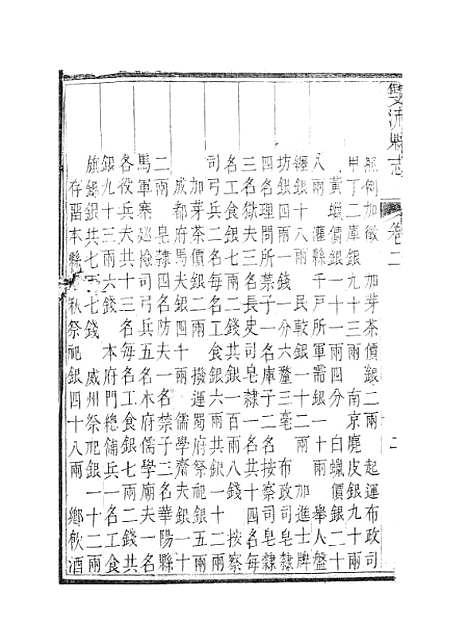 雙流縣志
卷二
二
照例加徵 加芽茶價銀二兩 起運布政司
甲丁二庫銀九十三兩 南京麂皮銀九十兩
黃蠟價銀一十一兩四分 白蠟價銀二十
八兩 灌縣千戶所軍需銀一十兩 舉人盤
纏銀十八兩 民敎銀一十二兩 加進士牌
坊銀四兩一錢一分六釐三毫 布政司皂隸
四名理問所葉子一名庫子二名按察司皂隸
三名獄夫三名長史司皂隸一名共十四名每
名工食銀七兩二錢共銀一百兩八錢 按察
司弓兵二名每名工食銀一十
加芽茶價銀二兩 撥運蜀府祭祀銀五兩
成都府馬夫銀四十兩 儒學齋夫銀一十
二兩 皂隸四名防夫一名禁子二名華陽縣
馬軍寨巡檢司弓兵五名本府儒學廟夫一名
各役兵夫共十三名每名工食銀七兩二錢共
銀九十三兩六錢 本府門總備兵一名工食
旗錄銀共七十七錢 威州祭祀銀一十二兩
存畱本縣 秋祭祀銀四十八兩 鄉飲酒